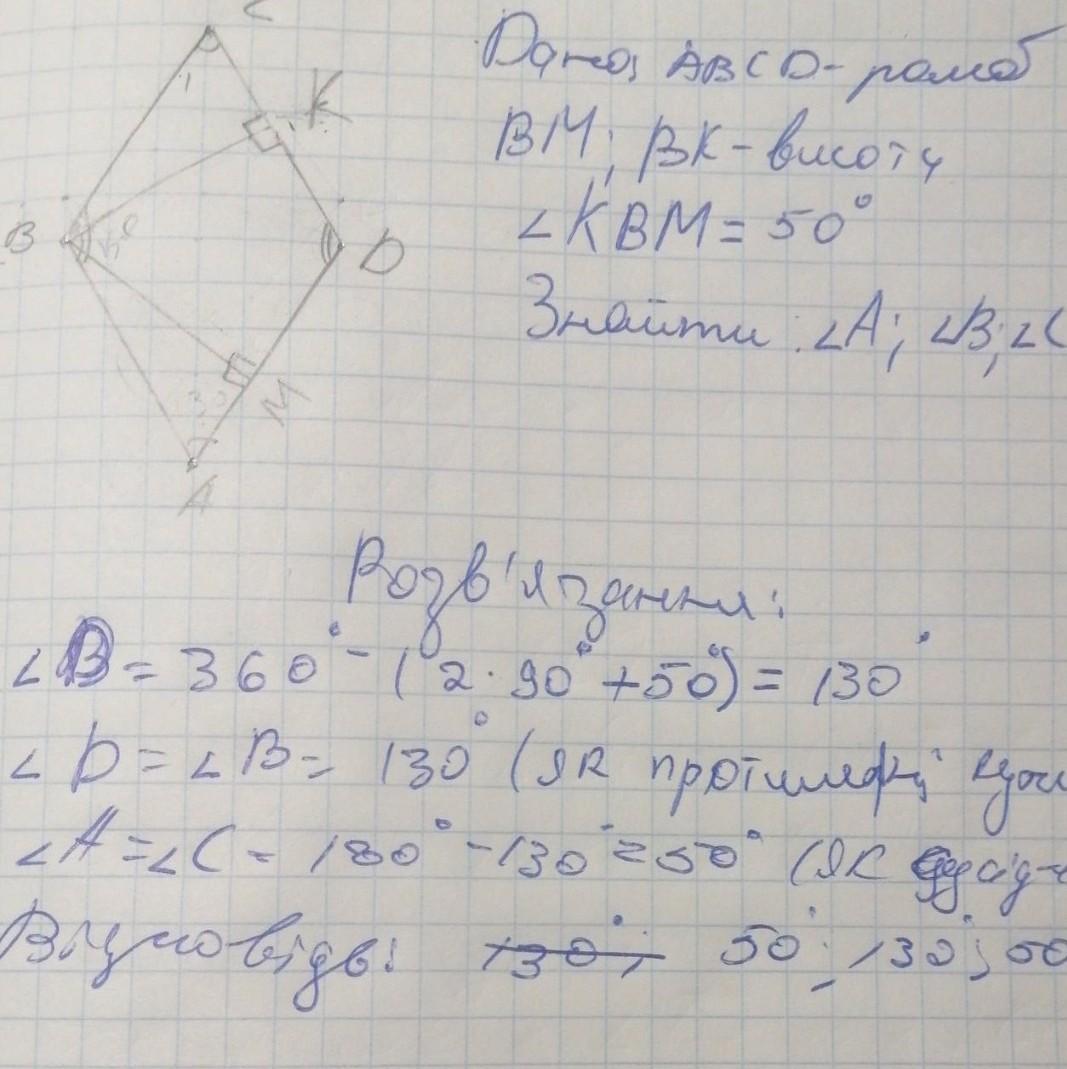 C
Дано: ABCD - ромб
K
BM; BK - висоти
1
∠KBM = 50°
B
D
Знайти: ∠A; ∠B; ∠C
M
A
Розв'язання:
∠B = 360° - (2·90° + 50°) = 130°
∠D = ∠B = 130° (як протилежні
∠A = ∠C = 180° - 130° = 50° (як
Відповідь: 130°; 50°; 130°; 50